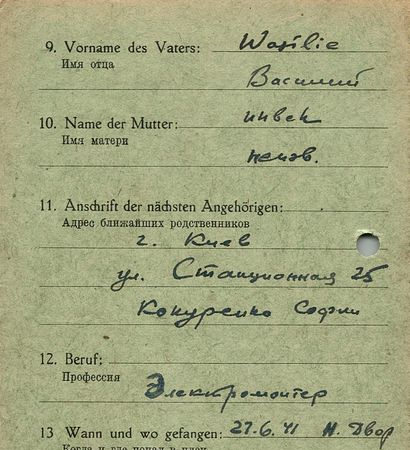 9. Vorname des Vaters: Wasilie
Имя отца
Василий
10. Name der Mutter: инвек
Имя матери
неизв.
11. Anschrift der nächsten Angehörigen:
Адрес ближайших родственников
г. Киев
ул. Станционная 25
Кокуренко Софии
12. Beruf:
Профессия
Электромонтер
13 Wann und wo gefangen: 27.6.41 Н. Двор
Когда и где попал в плен